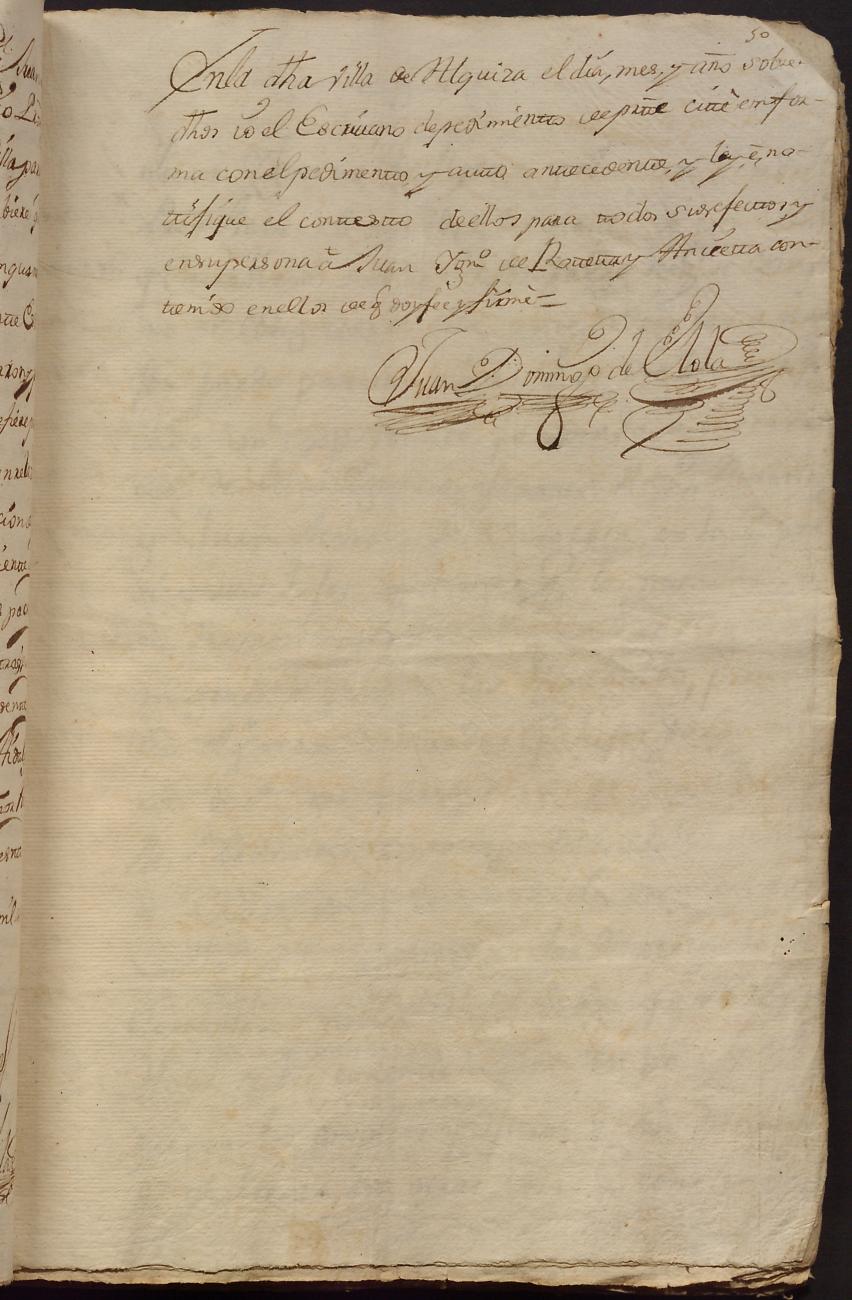 50
En la dha villa de Alquiza el dia, mes, y año sobre
dhos yo el Escriuano de pedimiento de parte cité en for-
ma con el pedimento y auto antecedente, y ley, é no-
tifique el contesto de ellos para todos sus efectos y
en su persona â Juan Ign.º de Retetta y Ancieta con-
tenido en ellos de q doy fee y firmè
Juan Domingo de Olola